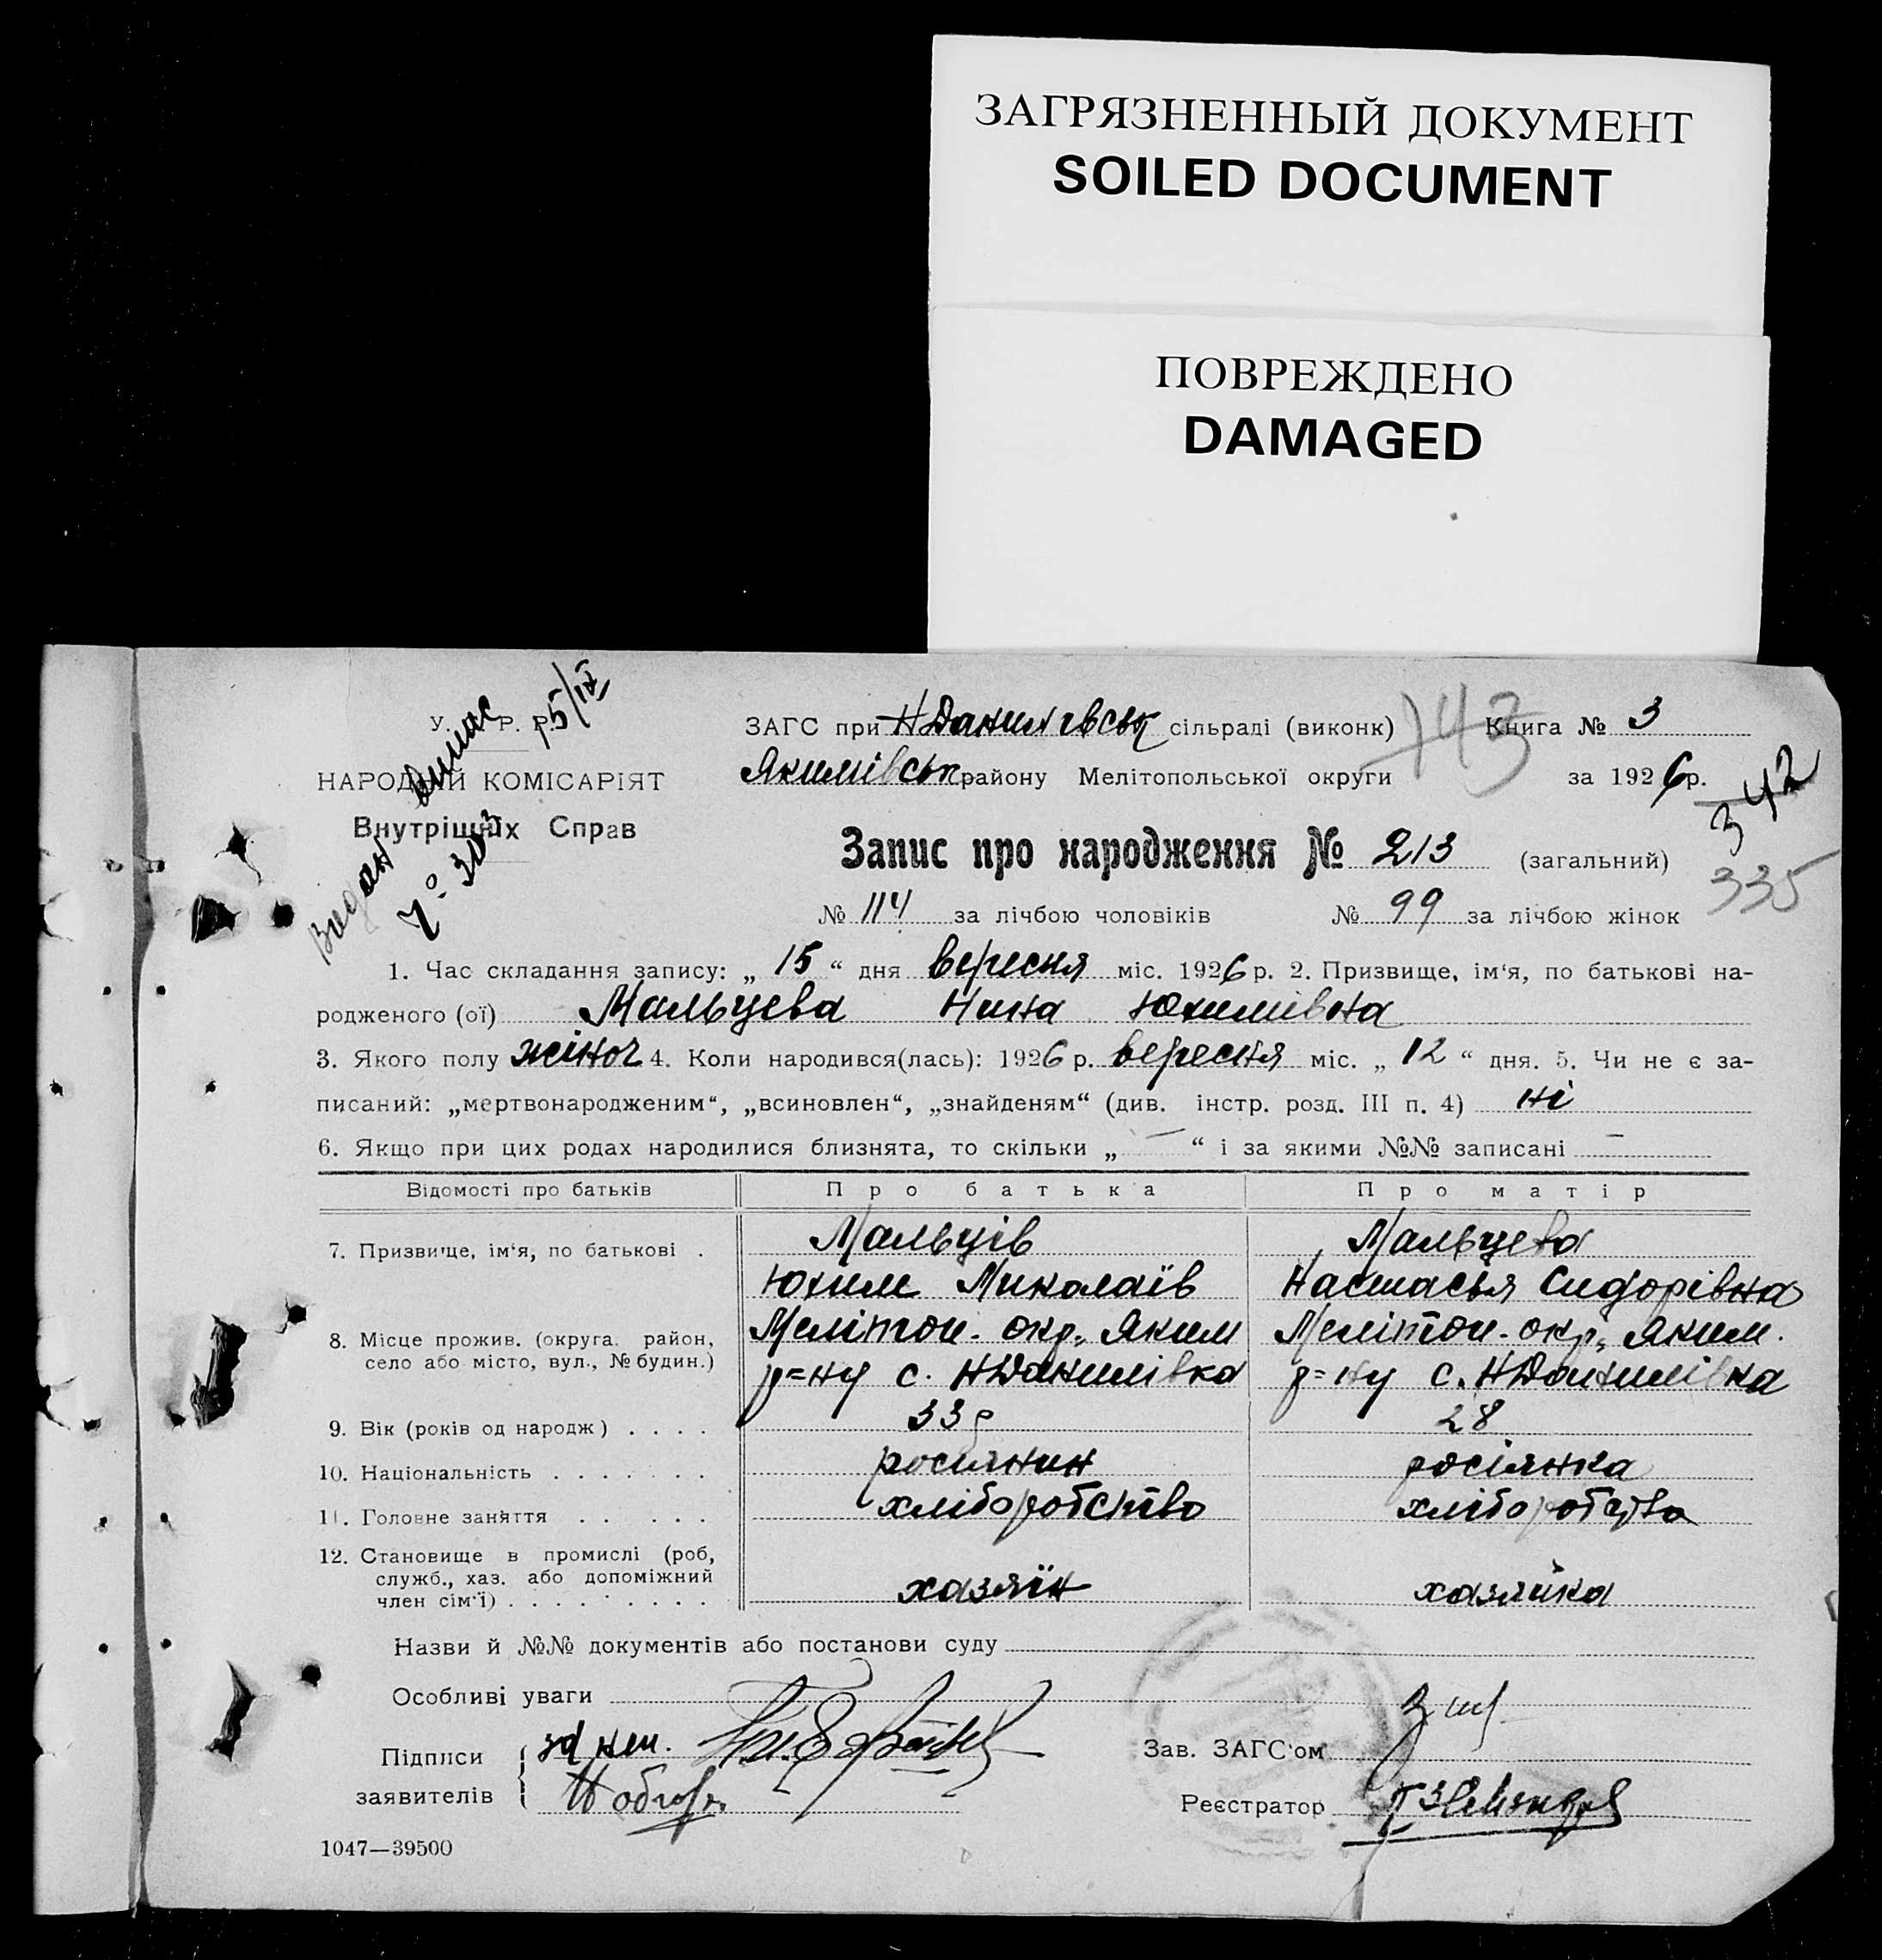 ЗАГРЯЗНЕННЫЙ ДОКУМЕНТ
SOILED DOCUMENT
ПОВРЕЖДЕНО
DAMAGED
ЗАГС при НДанилівськ сільраді (виконк) 143 Книга № 3
НАРОДНИЙ КОМІСАРІЯТ Якимівськ району Мелітопольської округи за 1926 р.
342
Внутрішніх Справ
Запис про народження № 213 (загальний)
335
№ 114 за лічбою чоловіків № 99 за лічбою жінок
1. Час складання запису: „ 15 “ дня вересня міс. 1926 р. 2. Призвище, ім‘я, по батькові на-
родженого (ої) Мальцева Нина Юхимівна
3. Якого полу жіноч 4. Коли народився(лась): 1926 р. вересня міс. „ 12 “ дня. 5. Чи не є за-
писаний: „мертвонародженим“, „всиновлен“, „знайденям“ (див. інстр. розд. III п. 4) ні
6. Якщо при цих родах народилися близнята, то скільки „ — “ і за якими №№ записані —
Відомості про батьків Про батька Про матір
7. Призвище, ім‘я, по батькові . Мальців Мальцева
Юхим Миколаїв Настасья Сидорівна
8. Місце прожив. (округа, район, Мелітоп. окр., Яким Мелітоп. окр., Яким.
село або місто, вул., № будин.) р=ну с. НДанилівка р=ну с. НДанилівка
9. Вік (років од народж) . . . . 33 р 28
10. Національність . . . . . . . росіянин росіянка
11. Головне заняття . . . . . хлiборобство хліборобство
12. Становище в промислі (роб,
служб., хаз. або допоміжний
член сім‘ї) . . . . . . . . . хазяїн хазяйка
Назви й №№ документів або постанови суду
Особливі уваги
Підписи
Зав. ЗАГС‘ом
заявителів
Реєстратор
1047—39500